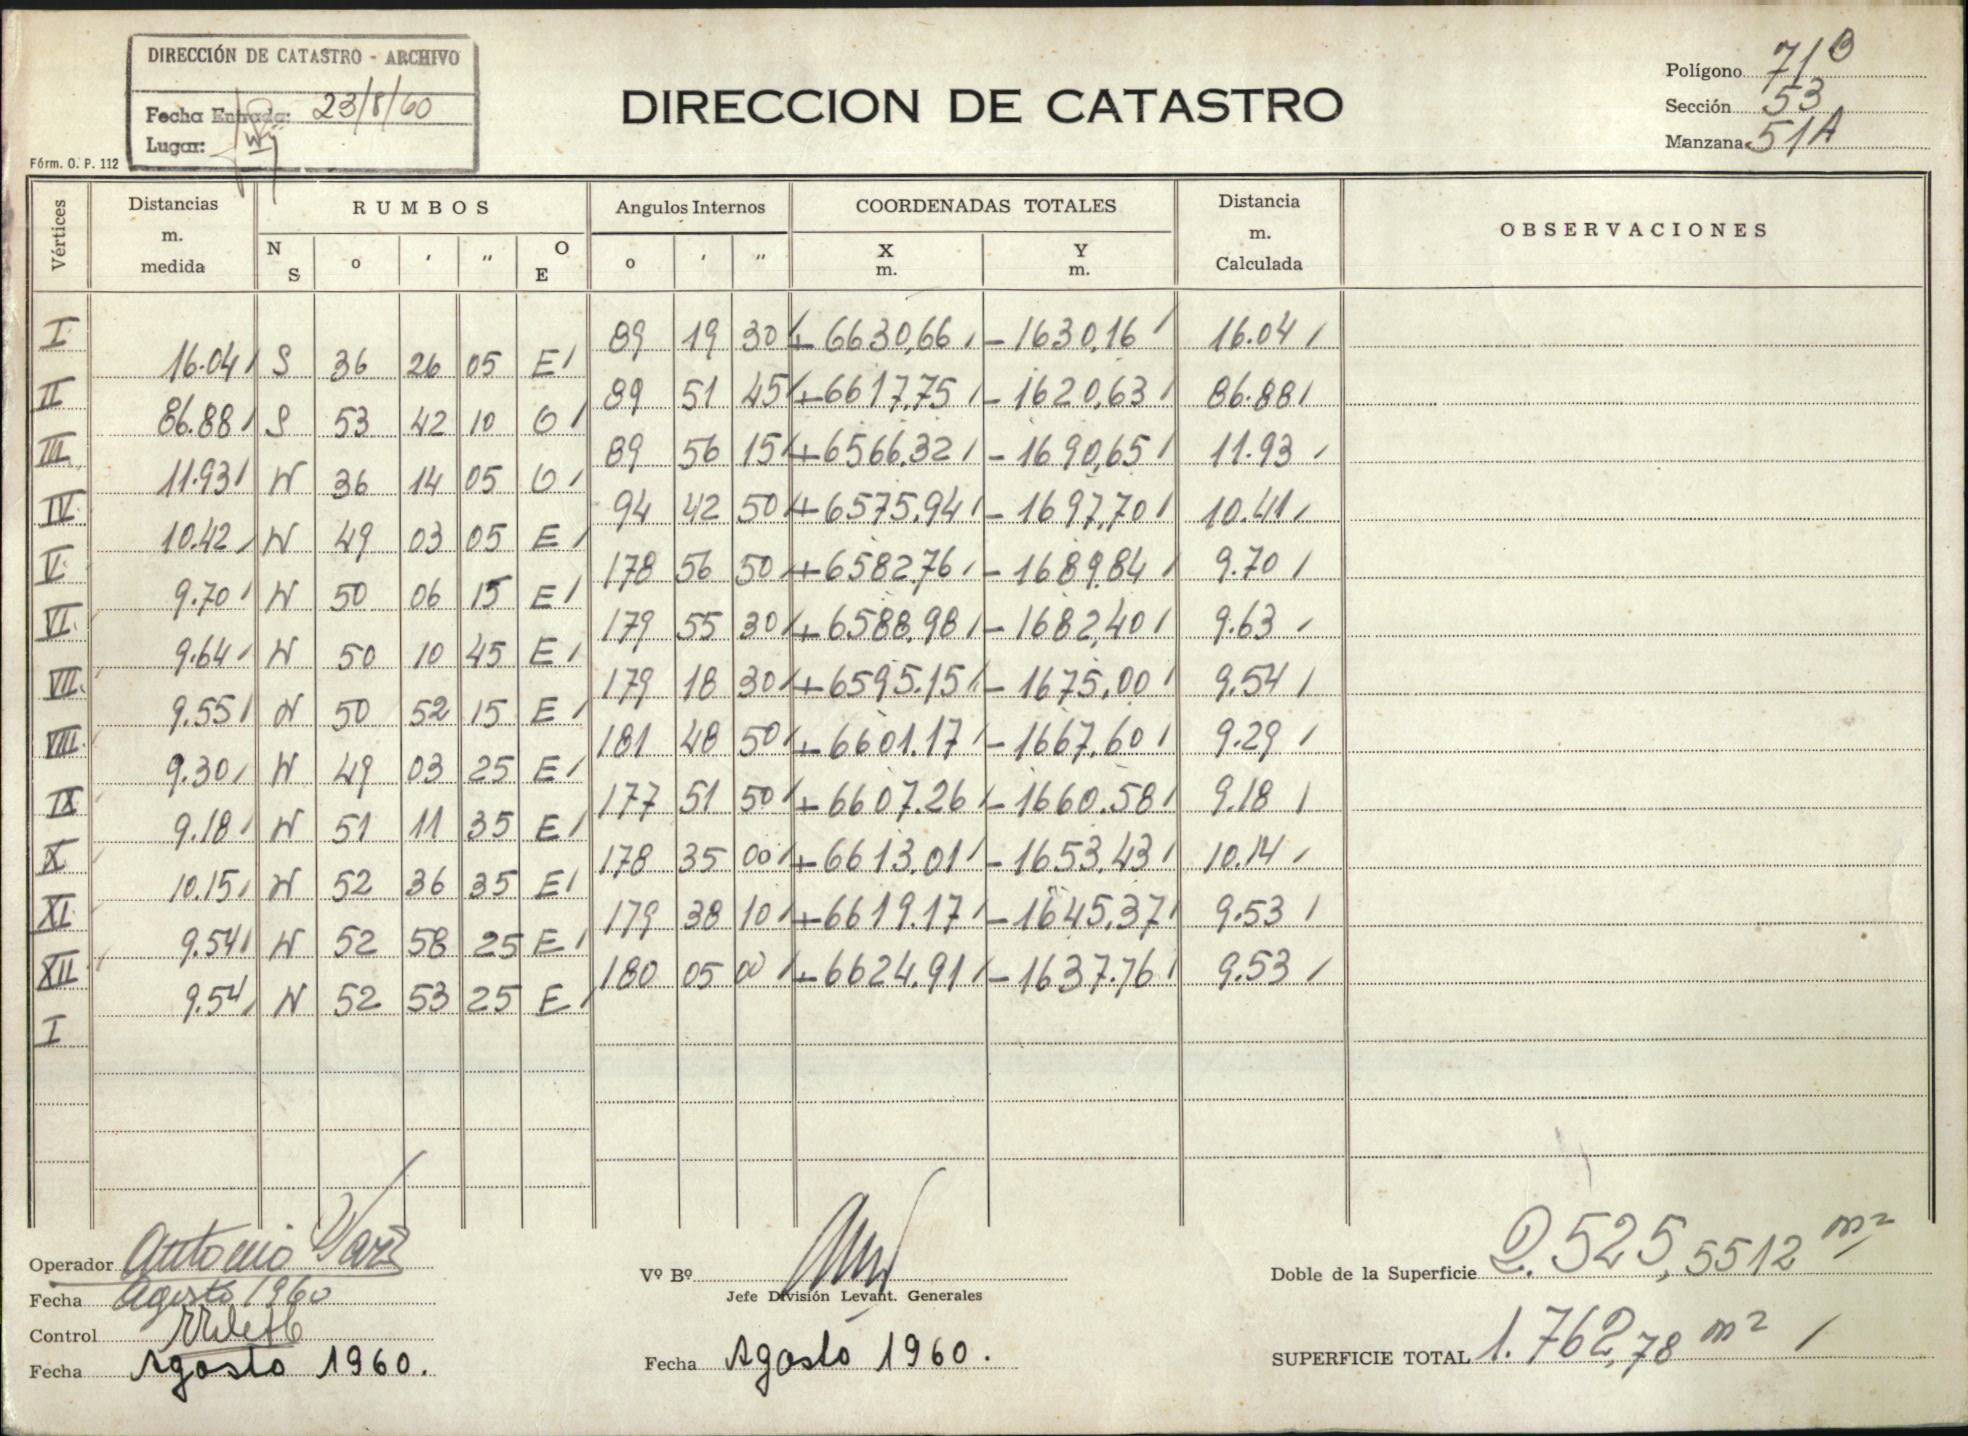 DIRECCIÓN DE CATASTRO - ARCHIVO
Fecha Entrada: 23/8/60
Lugar:
Fórm. O. P. 112
DIRECCION DE CATASTRO
Polígono 71B
Sección 53
Manzana 51A
Vértices Distancias m. medida RUMBOS Angulos Internos COORDENADAS TOTALES Distancia m. Calculada OBSERVACIONES
N S o ' " O E o ' " X m. Y m.
I 89 19 30 + 6630,66 - 1630,16 16.04
16.04 S 36 26 05 E
II 89 51 45 + 6617,75 - 1620,63 86.88
86.88 S 53 42 10 O
III 89 56 15 + 6566,32 - 1690,65 11.93
11.93 N 36 14 05 O
IV 94 42 50 + 6575,94 - 1697,70 10.41
10.42 N 49 03 05 E
V 178 56 50 + 6582,76 - 1689,84 9.70
9.70 N 50 06 15 E
VI 179 55 30 + 6588,98 - 1682,40 9.63
9.64 N 50 10 45 E
VII 179 18 30 + 6595.15 - 1675,00 9.54
9.55 N 50 52 15 E
VIII 181 48 50 + 6601.17 - 1667,60 9.29
9.30 N 49 03 25 E
IX 177 51 50 + 6607.26 - 1660.58 9.18
9.18 N 51 11 35 E
X 178 35 00 + 6613.01 - 1653,43 10.14
10.15 N 52 36 35 E
XI 179 38 10 + 6619.17 - 1645,37 9.53
9.54 N 52 58 25 E
XII 180 05 00 + 6624.91 - 1637.76 9.53
9.54 N 52 53 25 E
I
Operador Antonio
Fecha Agosto 1960
Control
Fecha Agosto 1960.
Vº Bº
Jefe División Levant. Generales
Fecha Agosto 1960.
Doble de la Superficie 2.525,5512 m²
SUPERFICIE TOTAL 1.762,78 m²